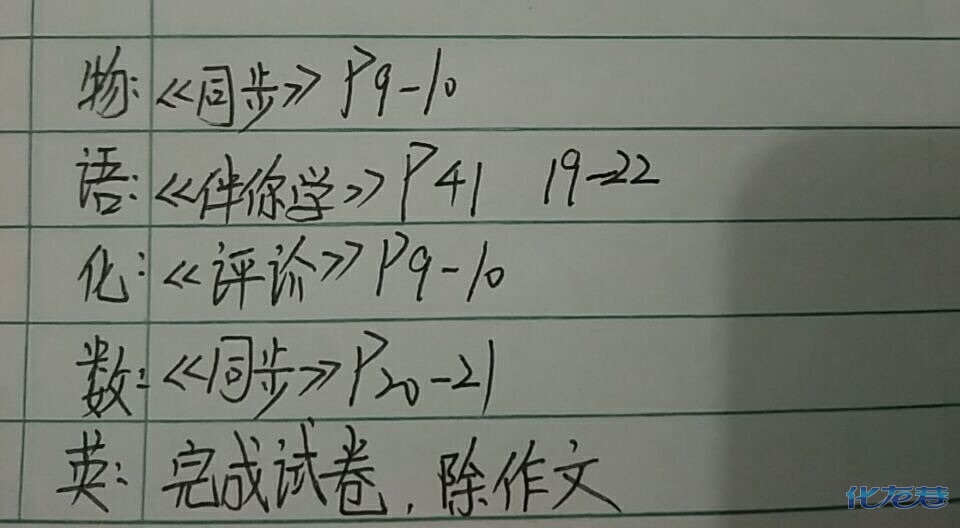 物:《同步》P9-10
语:《伴你学》P41 19-22
化:《评价》P9-10
数:《同步》P20-21
英:完成试卷,除作文
化龙巷